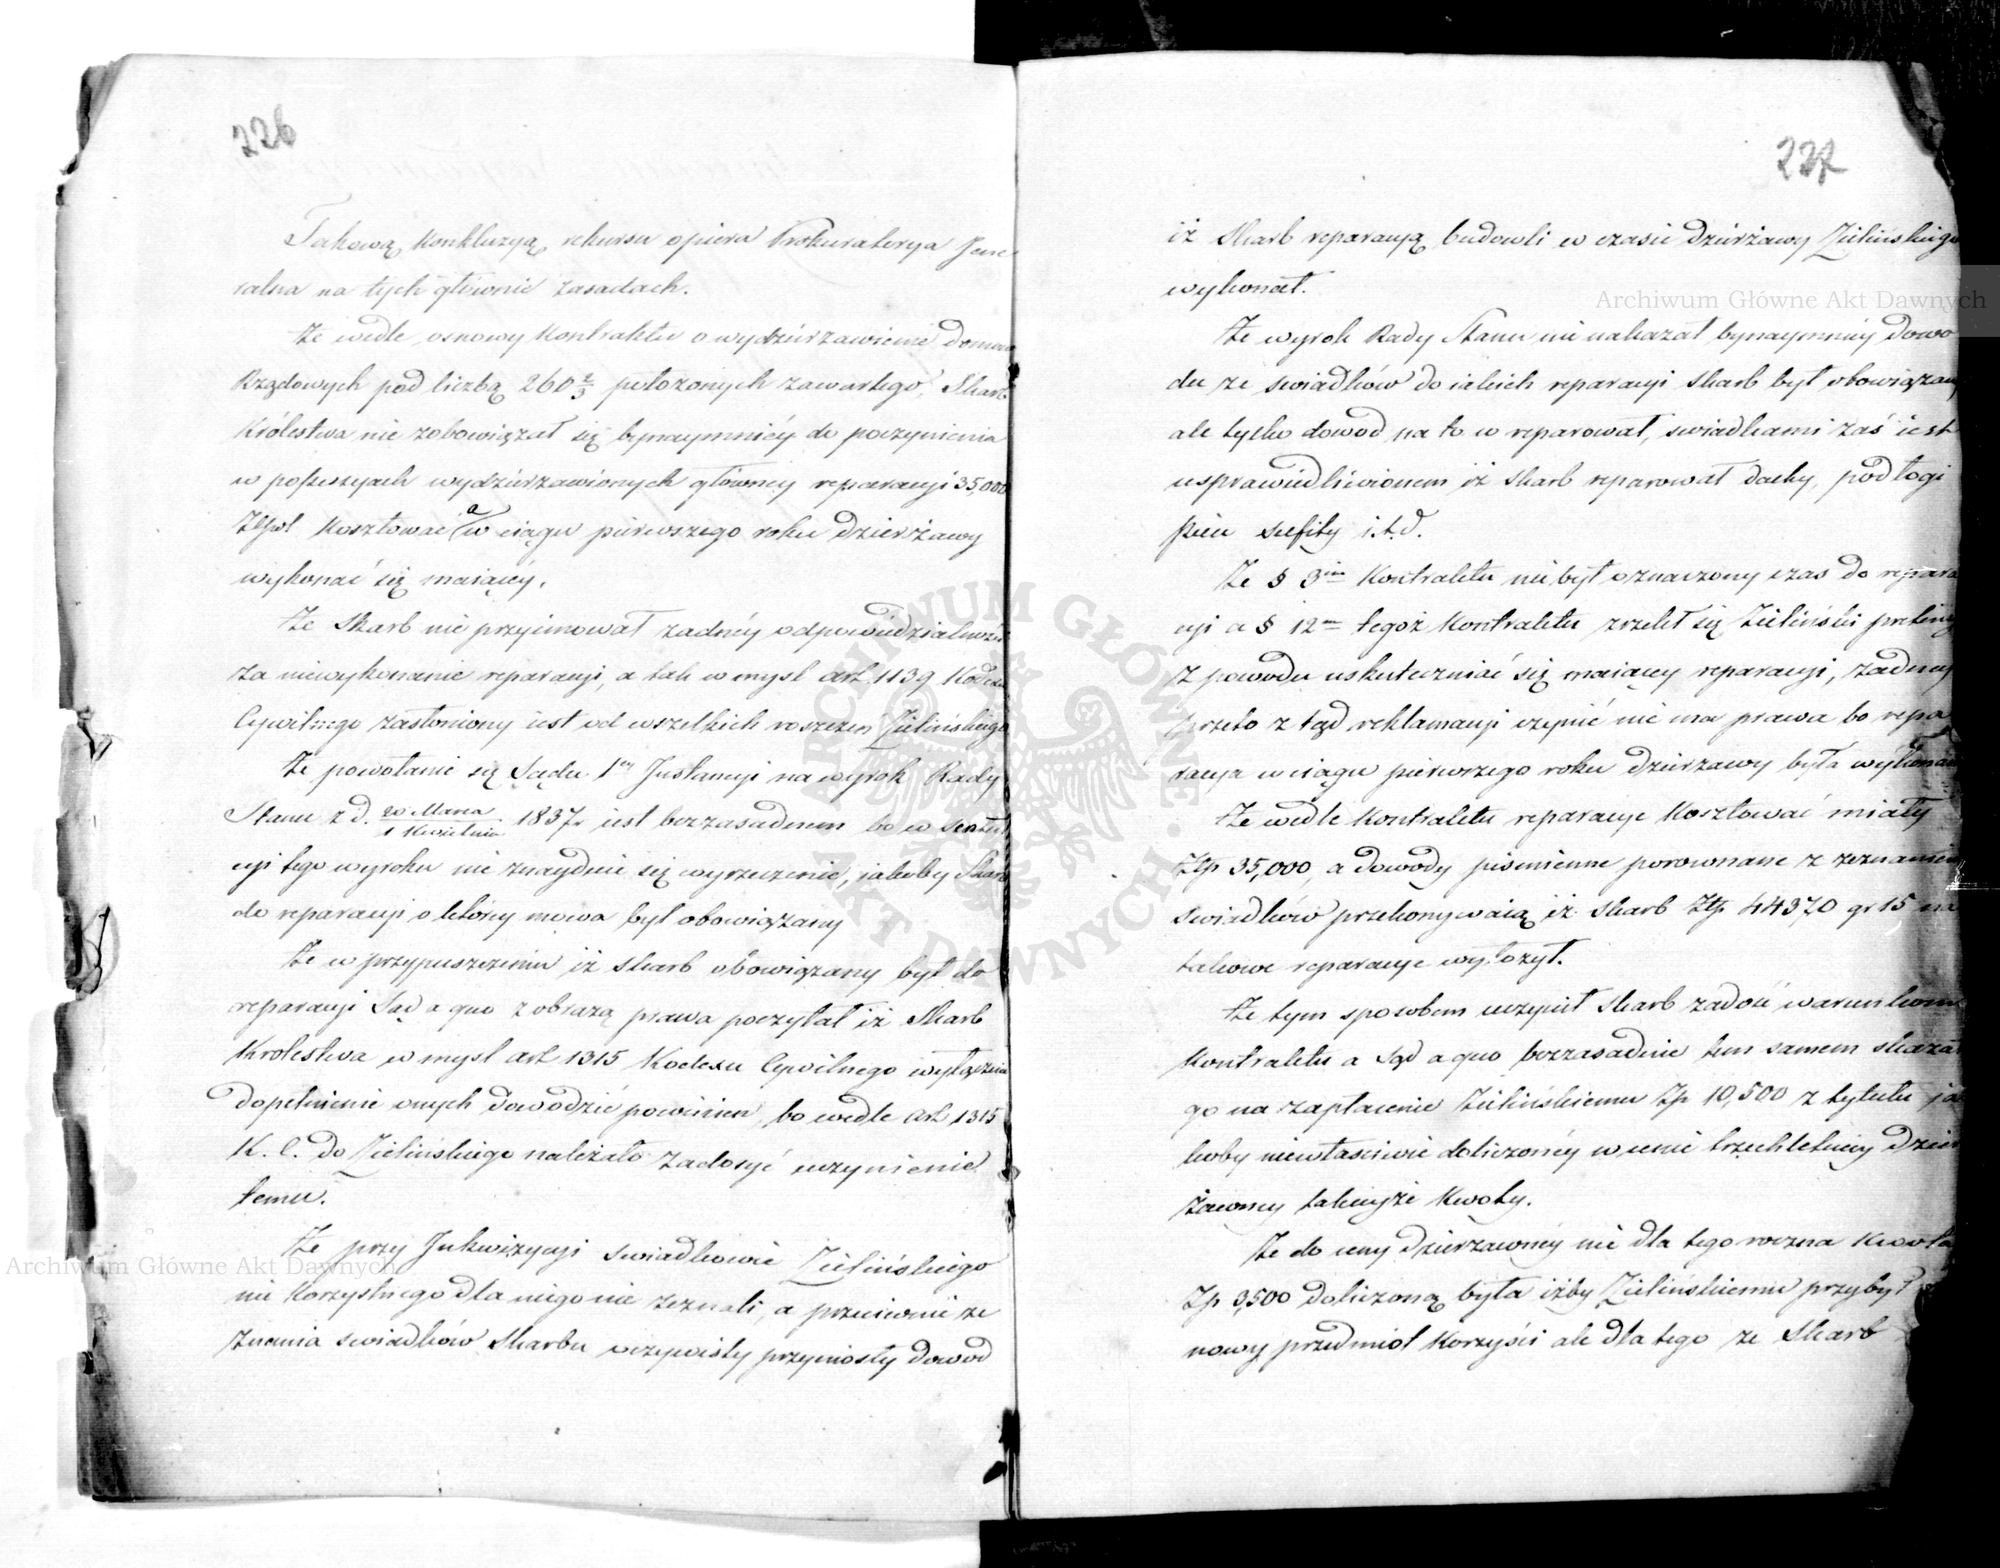 226
Takową konkluzyą rekursu opiera Prokuratorya Jene
ralna na tych głównie zasadach.
Że wedle osnowy Kontraktu o wydzierżawienie domów
Rządowych pod liczbą 260 2/3 położonych zawartego, Skarb
Królestwa nie zobowiązał się bynaymniéy do poczynienia
w possessyach wydzierżawionych główney reparacyi 35,000
Złpol kosztować a w ciągu pierwszego roku dzierżawy
wykonać się maiącéy.
Że Skarb nie przyimował żadnéy odpowiedzialności
za niewykonanie reparacyi, a tak w mysl art. 1139 Kodexu
Cywilnego zasłoniony iest od wszelkich roszczen Zielińskiego
Że powołanie się Sądu 1ey Instancyi na wyrok Rady
Stanu z d. 20 Marca / 1 Kwietnia 1837 r. iest bezzasadnem bo w senten
cyi tego wyroku nie znayduie się wyrzeczenie, jakoby Skarb
do reparacyi o któréy mowa był obowiązany
Że w przypuszczeniu iż Skarb obowiązany był do
reparacyi Sąd a quo z obrazą prawa poczytał iż Skarb
Krolestwa w mysl art 1315 Kodexu Cywilnego wyłącznie
dopełnienie onych dowodzić powinien, bo wedle Art 1315
K. C. do Zielińskiego należało zadosyć uczynienie
temu.
Że przy Inkwizycyi swiadkowie Zielińskiego
nic korzystnego dla niego nie zeznali, a przeciwnie ze
znania swiadków Skarbu oczywisty przyniosły dowód
227
iż Skarb reparacyą budowli w czasie dzierżawy Zielińskiego
wykonał.
Że wyrok Rady Stanu nie nakazał bynaymniéy dowo
du ze swiadków do iakich reparacyi Skarb był obowiązany
ale tylko dowod na to co reparował, swiadkami zaś iest
usprawiedliwionem iż Skarb reparował dachy, podłogi
piece sufity i.t.d.
Że § 3im Kontraktu nie był oznaczony czas do repara
cyi a § 12m tegoż Kontraktu zrzekł się Zieliński pretensyi
z powodu uskuteczniać się maiącey reparacyi, żadney
przeto z tąd reklamacyi czynić nie ma prawa bo repa
racya w ciągu pierwszego roku dzierżawy była wykonana
Że wedle kontraktu reparacye kosztować miały
Złp 35,000, a dowody piśmienne porownane z zeznaniem
Swiadków przekonywaią iż Skarb Złp 44370 gr 15 na
takowe reparacye wyłożył.
Że tym sposobem uczynił Skarb zadość warunkom
Kontraktu a Sąd a quo bezzasadnie tem samem skazał
go na zapłacenie Zielińskiemu Zp 10,500 z tytułu ja
koby niewłasciwie doliczonéy w cenie trzechletniéy dzier
żawney takieyże kwoty.
Że do ceny dzierżawnéy nie dla tego roczna kwota
Zp 3,500 doliczoną była iżby Zielińskiemu przybył
nowy przedmiot korzyści ale dla tego ze Skarb
Archiwum Główne Akt Dawnych
Archiwum Główne Akt Dawnych
ARCHIWUM GŁÓWNE AKT DAWNYCH